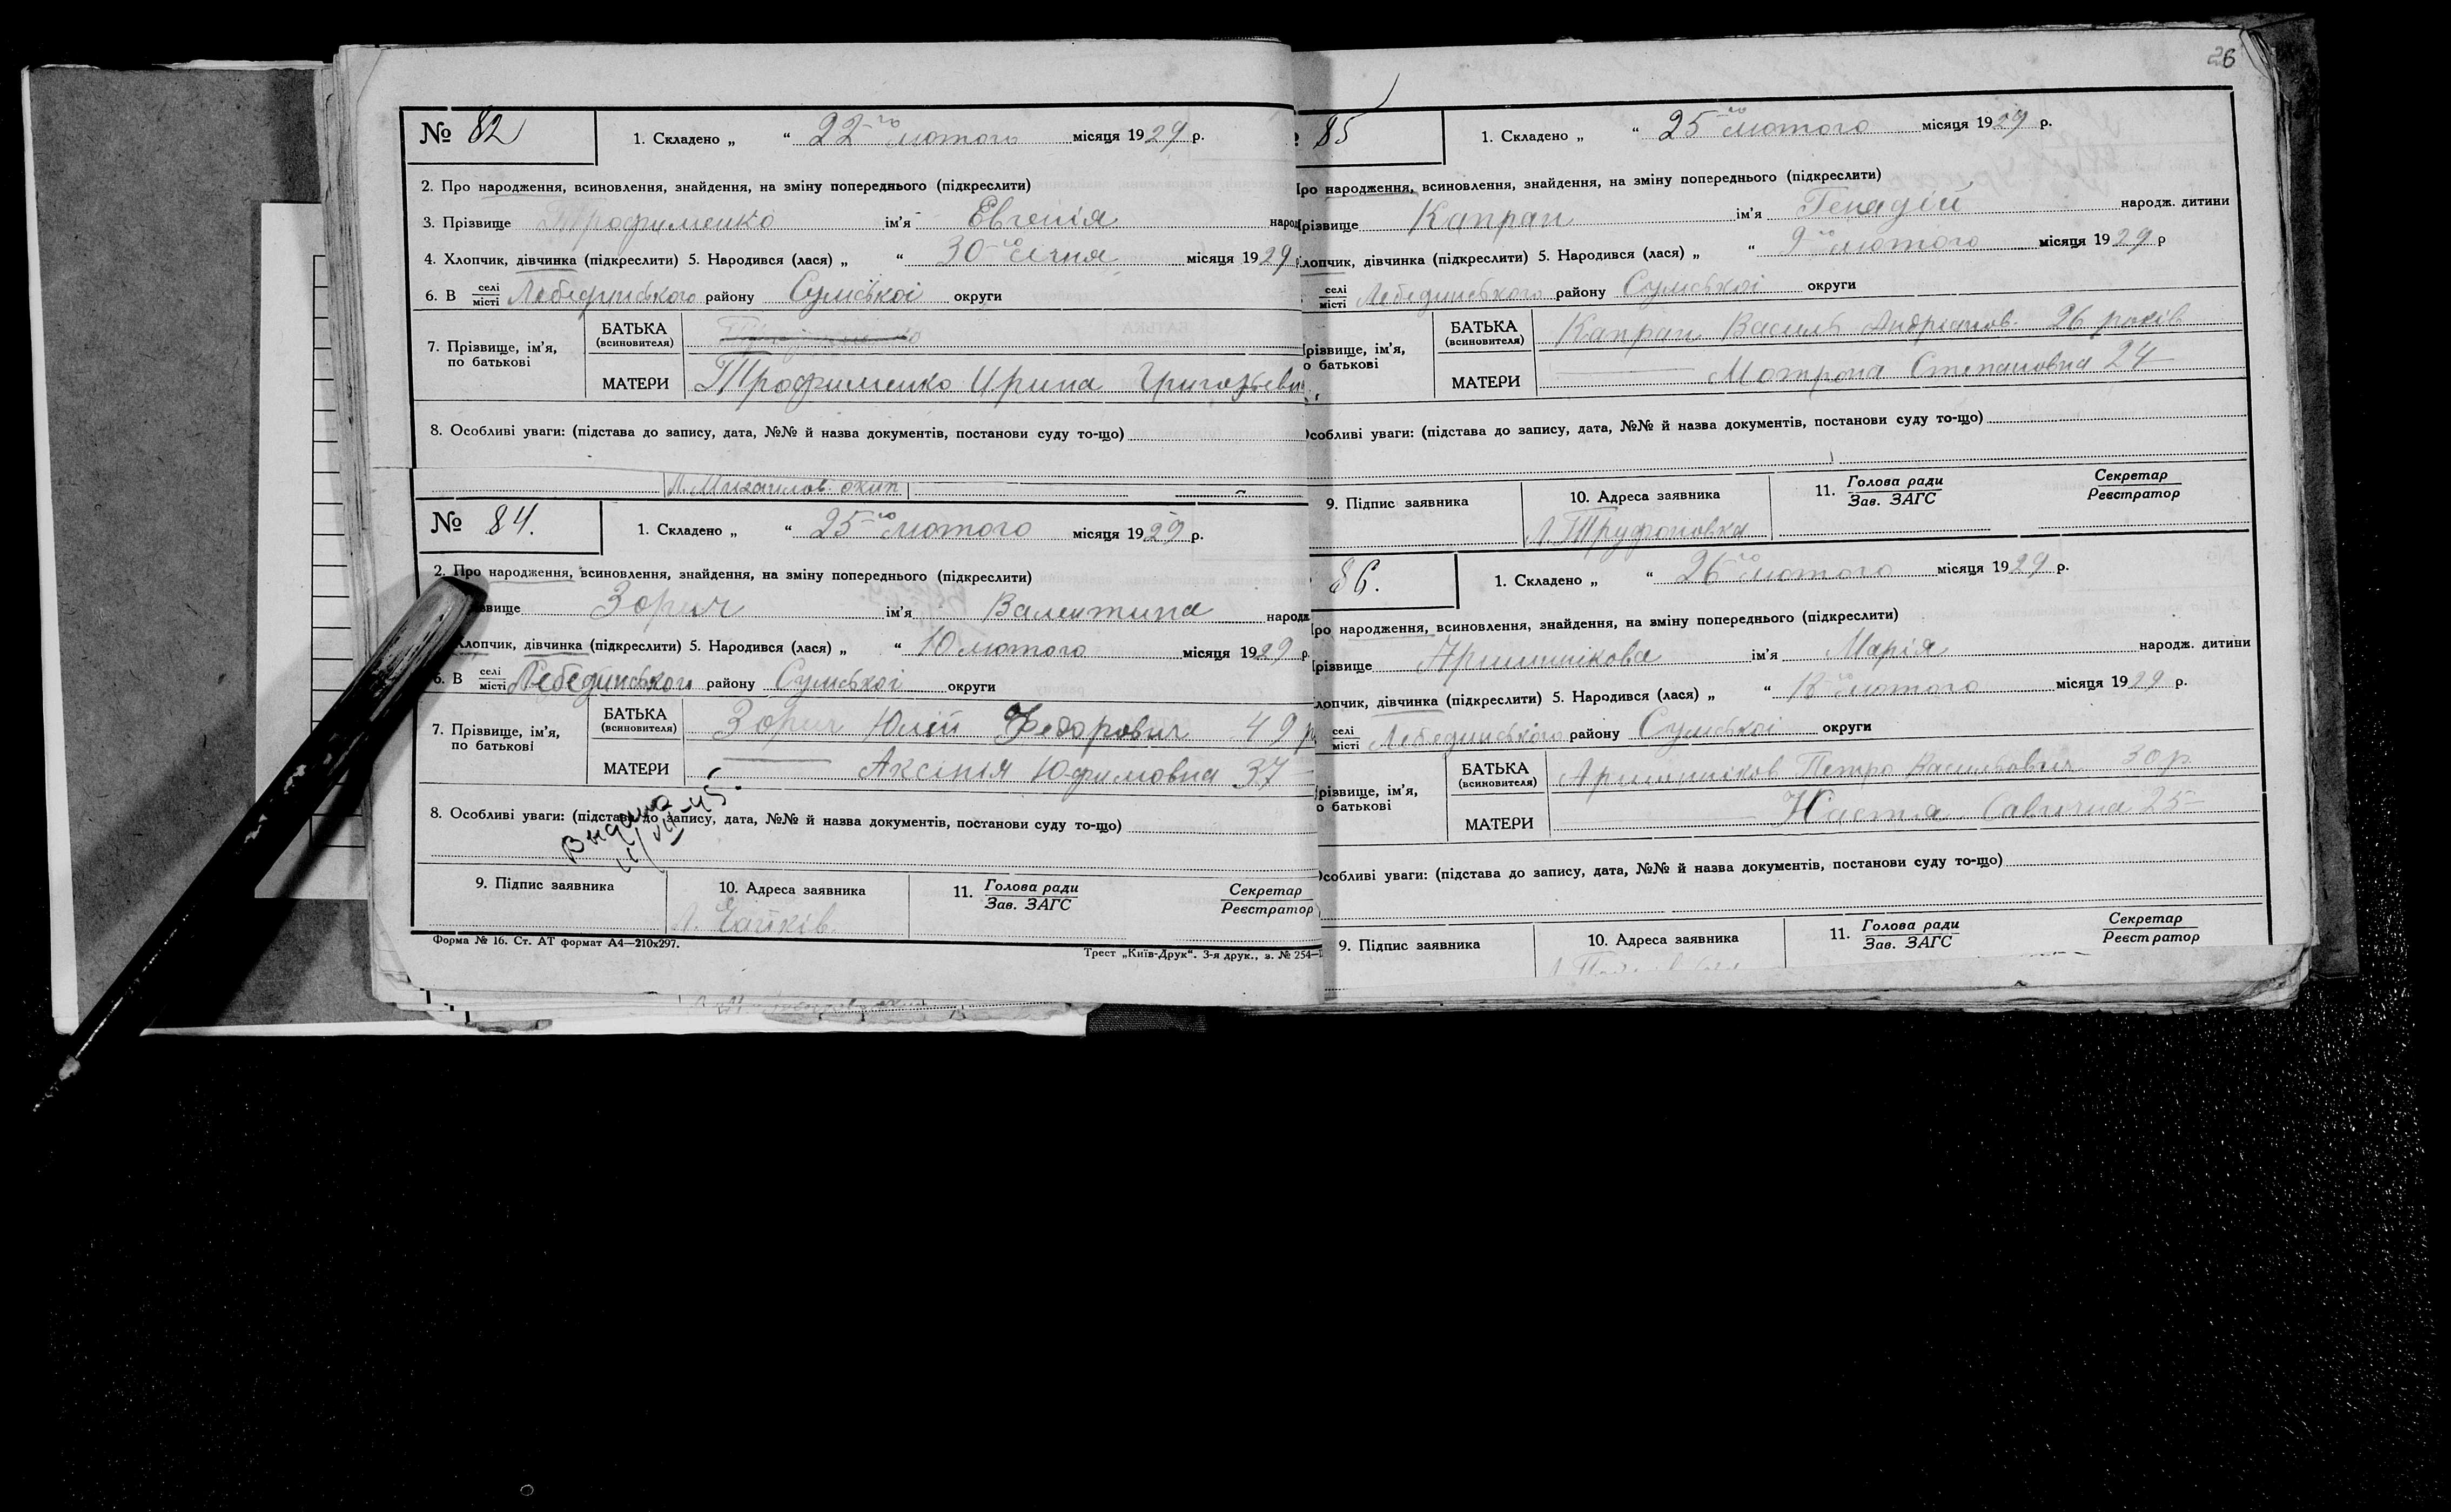 26
№ 82
1. Складено „ “ 22-го лютого місяця 1929 р.
2. Про народження, всиновлення, знайдення, на зміну попереднього (підкреслити)
3. Прізвище Трофименко ім’я Евгенія народ
4. Хлопчик, дівчинка (підкреслити) 5. Народився (лася) „ “ 30-го січня місяця 1929
6. В селі місті Лебединського району Сумської округи
7. Прізвище, ім’я, по батькові
БАТЬКА (всиновителя)
МАТЕРИ Трофименко Ирина
8. Особливі уваги: (підстава до запису, дата, №№ й назва документів, постанови суду то-що)
№ 84.
1. Складено „ “ 25-го лютого місяця 1929 р.
2. Про народження, всиновлення, знайдення, на зміну попереднього (підкреслити)
звище Зорич ім’я Валентина народж
Хлопчик, дівчинка (підкреслити) 5. Народився (лася) „ “ 10 лютого місяця 1929 р.
6. В селі місті Лебединського району Сумської округи
7. Прізвище, ім’я, по батькові
БАТЬКА (всиновителя) Зорич Юлій Федорович 49 р
МАТЕРИ — Аксінія Юфимовна 37 —
8. Особливі уваги: (підстава до запису, дата, №№ й назва документів, постанови суду то-що)
Видано
9. Підпис заявника 10. Адреса заявника 11. Голова ради Зав. ЗАГС Секретар Реєстратор
Форма № 16. Ст. АТ формат А4—210х297.
Трест „Київ-Друк“. 3-я друк., з. № 254—
85
1. Складено „ “ 25-го лютого місяця 1929 р.
ро народження, всиновлення, знайдення, на зміну попереднього (підкреслити)
різвище Капран ім’я Генадій народж. дитини
лопчик, дівчинка (підкреслити) 5. Народився (лася) „ “ 9-го лютого місяця 1929 р
селі місті Лебединського району Сумської округи
різвище, ім’я, о батькові
БАТЬКА (всиновителя) Капран Василь Андріанов. 26 років
МАТЕРИ — Мотрона Степановна 24 —
собливі уваги: (підстава до запису, дата, №№ й назва документів, постанови суду то-що)
9. Підпис заявника 10. Адреса заявника 11. Голова ради Зав. ЗАГС Секретар Реєстратор
Л. Труфоновка
86.
1. Складено „ “ 26-го лютого місяця 1929 р.
ро народження, всиновлення, знайдення, на зміну попереднього (підкреслити)
різвище ім’я Марія народж. дитини
лопчик, дівчинка (підкреслити) 5. Народився (лася) „ “ лютого місяця 1929 р.
селі місті Лебединського району Сумської округи
різвище, ім’я, о батькові
БАТЬКА (всиновителя) Петро Васильович 30 р.
МАТЕРИ — Настя Савична 25 —
собливі уваги: (підстава до запису, дата, №№ й назва документів, постанови суду то-що)
9. Підпис заявника 10. Адреса заявника 11. Голова ради Зав. ЗАГС Секретар Реєстратор